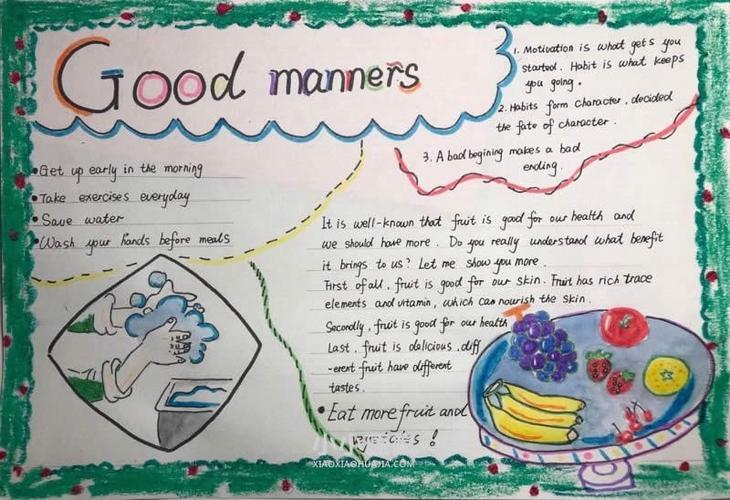 Good manners
1. Motivation is what gets you
started. Habit is what keeps
you going.
2. Habits form character, decided
the fate of character.
3. A bad begining makes a bad
ending.
•Get up early in the morning
•Take exercises everyday
•Save water
•Wash your hands before meals
It is well-known that fruit is good for our health and
we should have more. Do you really understand what benefit
it brings to us? Let me show you more.
First of all, fruit is good for our skin. Fruit has rich trace
elements and vitamin, which can nourish the skin.
Secondly, fruit is good for our health
Last, fruit is delicious, diff
-erent fruit have different
tastes.
•Eat more fruit and
!
XIAOXIAOHUAJIA.COM